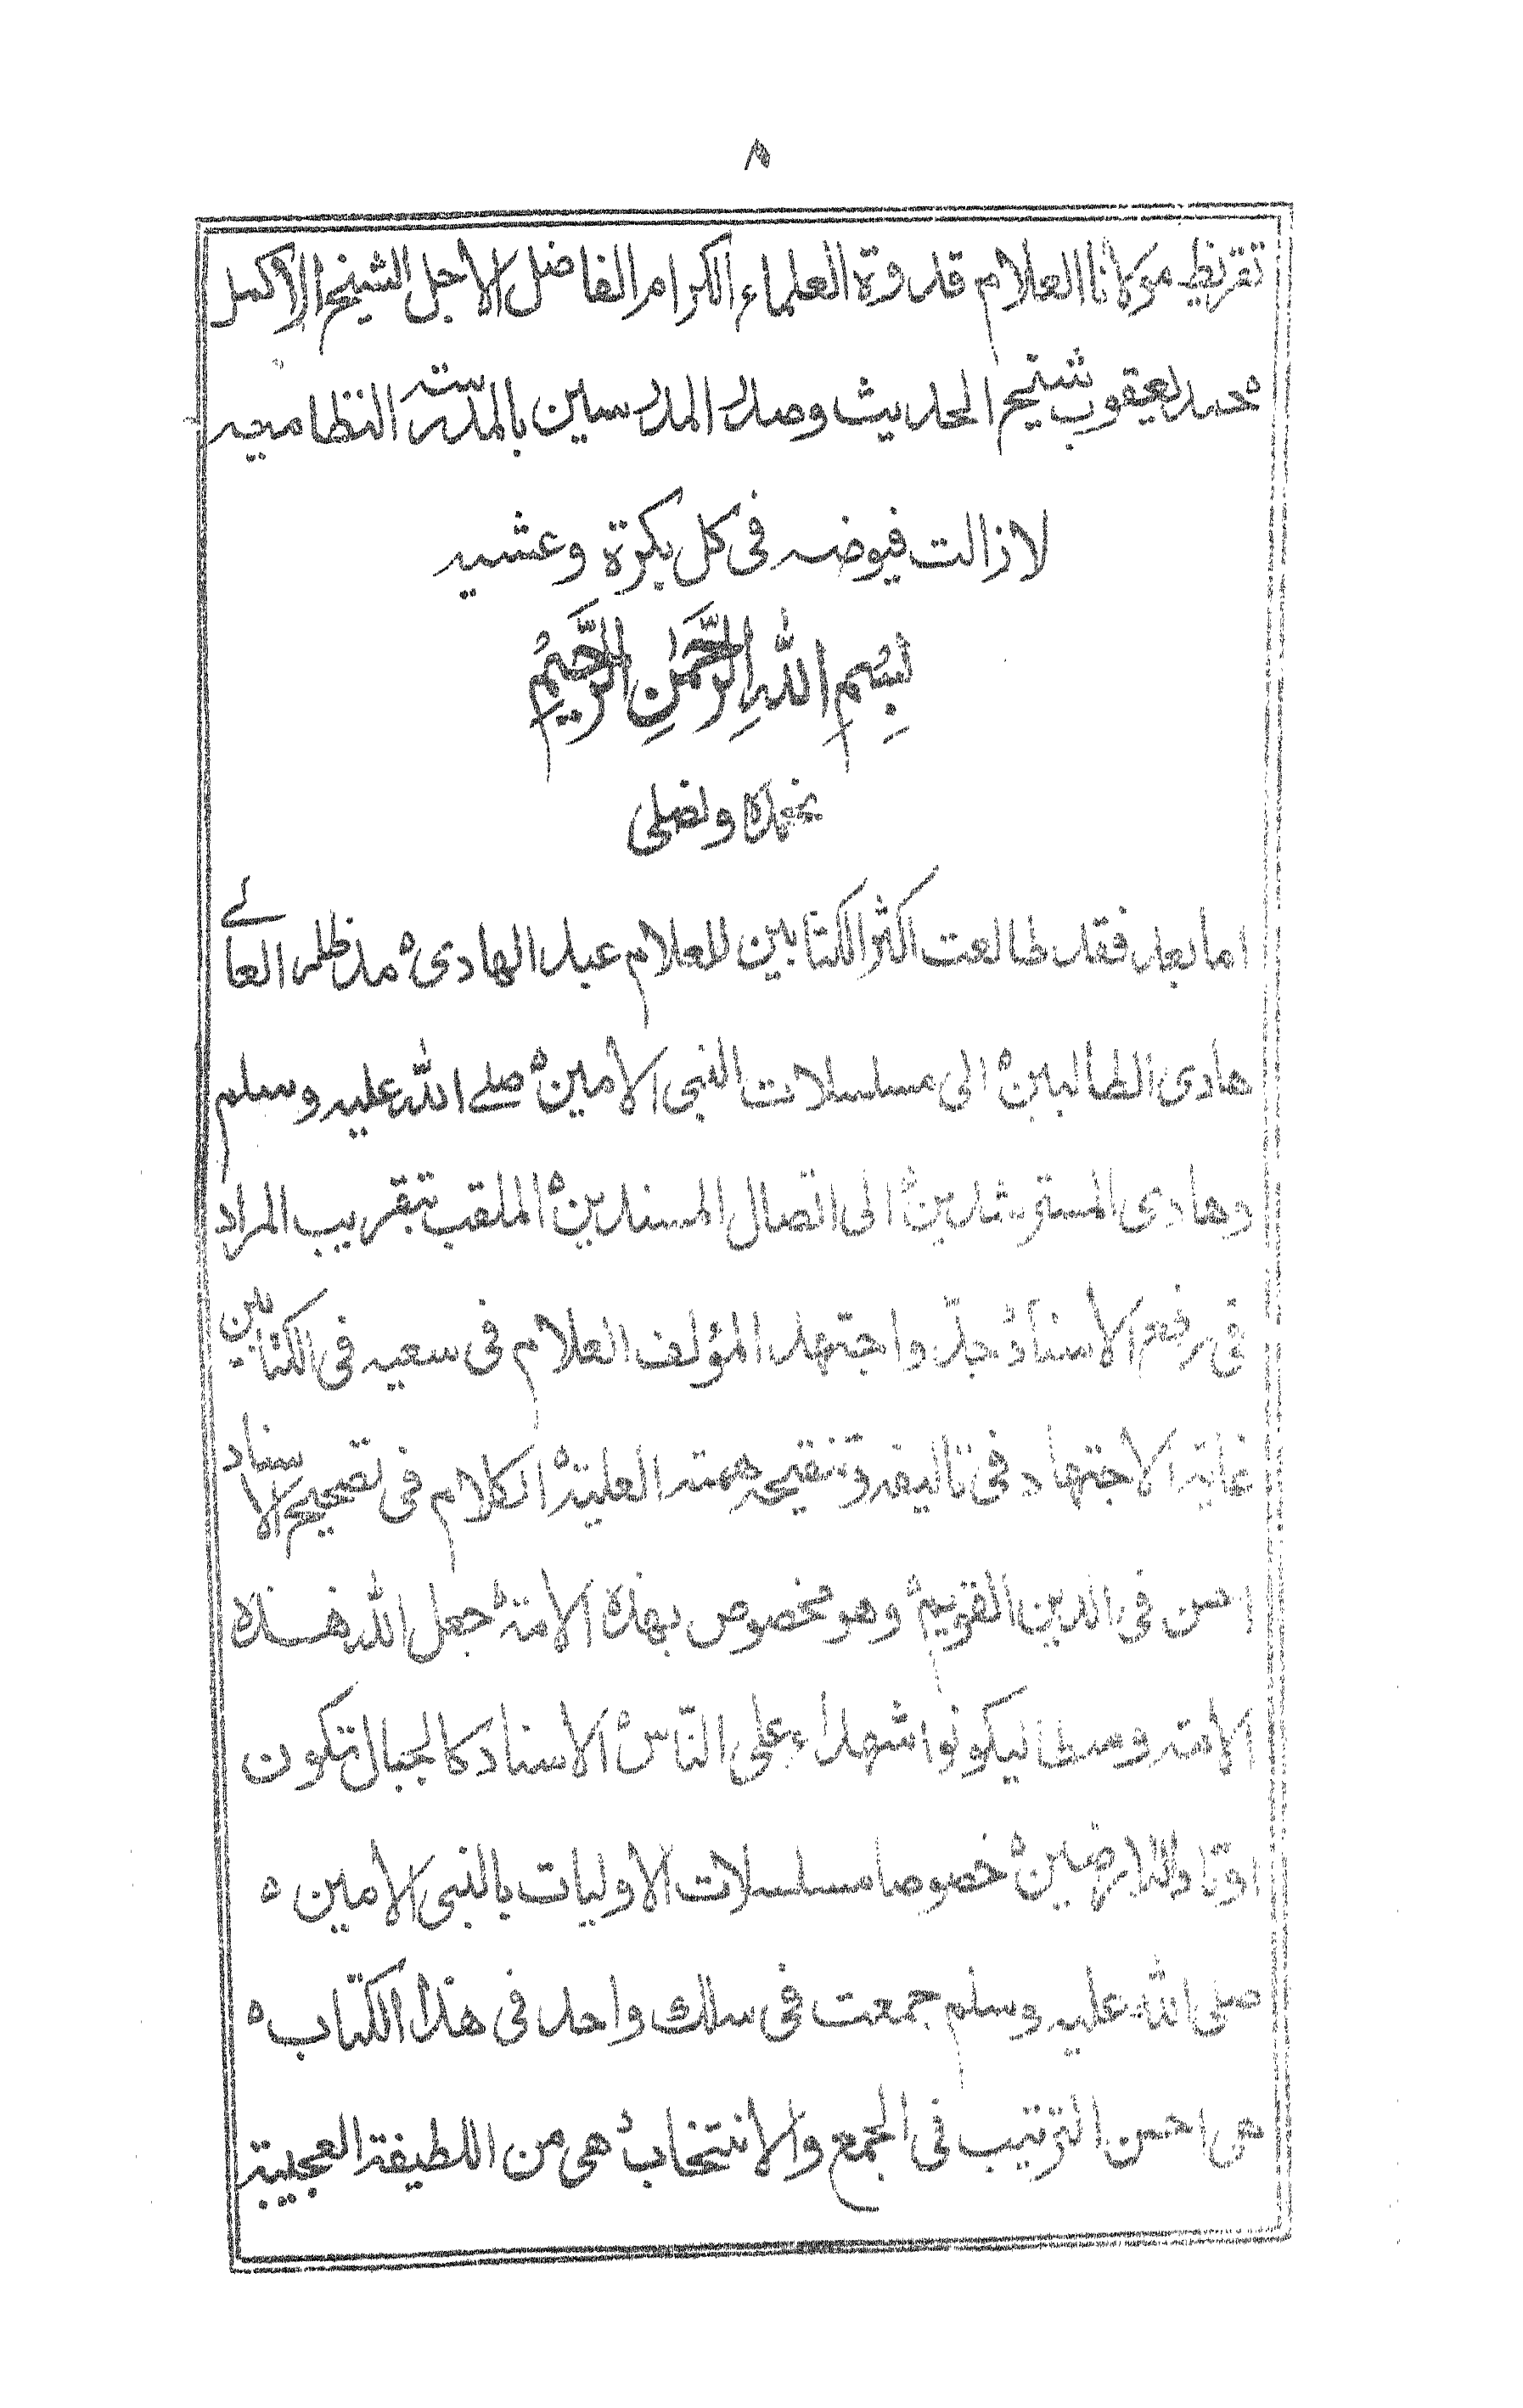 ٨
تقريظ مولانا العلام قدوة العلماء الكرام الفاضل الاجل الشيخ الاكمل
محمد يعقوب شيخ الحديث وصدر المدرسين بالمدرسته النظاميه
لا زالت فيوضه فى كل بكرة وعشيه
بِسْمِ اللهِ الرَّحْمٰنِ الرَّحِيْمِ
نحمده ونصلى
اما بعد فقد طالعت اكثر الكتابين للعلام عبد الهادىْ مد ظله العالے
هادى الطالبينْ الى مسلسلات النبى الامينْ صلے الله عليه وسلم
وهادى المسترشدينْ الى اتصال المسندينْ الملقب بتقريب المراد
فى رفع الاسنادْ جدّ واجتهد المؤلف العلام فى سعيه فى الكتابين
غاية الاجتهاد فى تاليفه وتنقيحه همته العليةْ الكلام فى تصحيح الاسناد
احسن فى الدين القويمْ وهو مخصوص بهذه الامةْ جعل الله هذه
الامته وسطا ليكونوا شهداء على النّاسْ الاسناد كالجبال تكون
اوتاد الارضينْ خصوصا مسلسلات الاوليات بالنبى الامين ه
صلى الله عليه وسلم جمعت فى سلك واحد فى هذا الكتاب ه
هى احسن الترتيب فى الجمع والانتخابْ هى من اللطيفة العجيبة